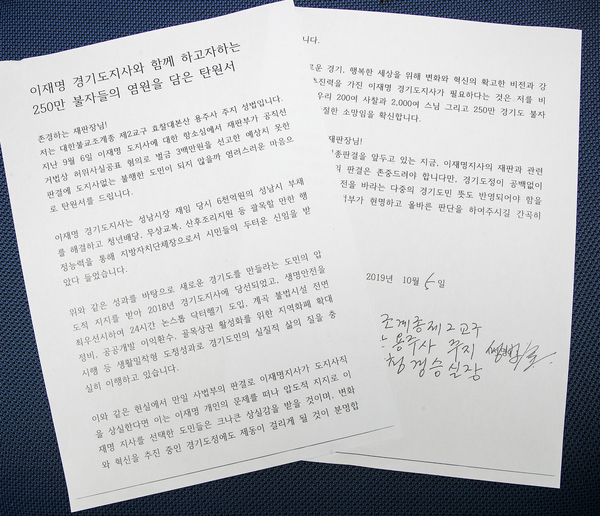 이재명 경기도지사와 함께 하고자하는
250만 불자들의 염원을 담은 탄원서
존경하는 재판장님!
저는 대한불교조계종 제2교구 효찰대본산 용주사 주지 성법입니다.
지난 9월 6일 이재명 도지사에 대한 항소심에서 재판부가 공직선
거법상 허위사실공표 혐의로 벌금 3백만원을 선고한 예상치 못한
판결에 도지사없는 불행한 도민이 되지 않을까 염려스러운 마음으
로 탄원서를 드립니다.
이재명 경기도지사는 성남시장 재임 당시 6천억원의 성남시 부채
를 해결하고 청년배당, 무상교복, 산후조리지원 등 괄목할 만한 행
정능력을 통해 지방자치단체장으로서 시민들의 두터운 신임을 받
았다 들었습니다.
위와 같은 성과를 바탕으로 새로운 경기도를 만들라는 도민의 압
도적 지지를 받아 2018년 경기도지사에 당선되었고, 생명안전을
최우선시하여 24시간 논스톱 닥터헬기 도입, 계곡 불법시설 전면
정비, 공공개발 이익환수, 골목상권 활성화를 위한 지역화폐 확대
시행 등 생활밀착형 도정성과로 경기도민의 실질적 삶의 질을 충
실히 이행하고 있습니다.
이와 같은 현실에서 만일 사법부의 판결로 이재명지사가 도지사직
을 상실한다면 이는 이재명 개인의 문제를 떠나 압도적 지지로 이
재명 지사를 선택한 도민들은 크나큰 상실감을 받을 것이며, 변화
와 혁신을 추진 중인 경기도정에도 제동이 걸리게 될 것이 분명합
니다.
로운 경기, 행복한 세상을 위해 변화와 혁신의 확고한 비전과 강
진력을 가진 이재명 경기도지사가 필요하다는 것은 저를 비
우리 200여 사찰과 2,000여 스님 그리고 250만 경기도 불자
절한 소망임을 확신합니다.
재판장님!
종판결을 앞두고 있는 지금, 이재명지사의 재판과 관련
판결은 존중드려야 합니다만, 경기도정이 공백없이
전을 바라는 다중의 경기도민 뜻도 반영되어야 함을
부가 현명하고 올바른 판단을 하여주시길 간곡히
2019년 10월 5일
조계종제2교구
용주사 주지 성법